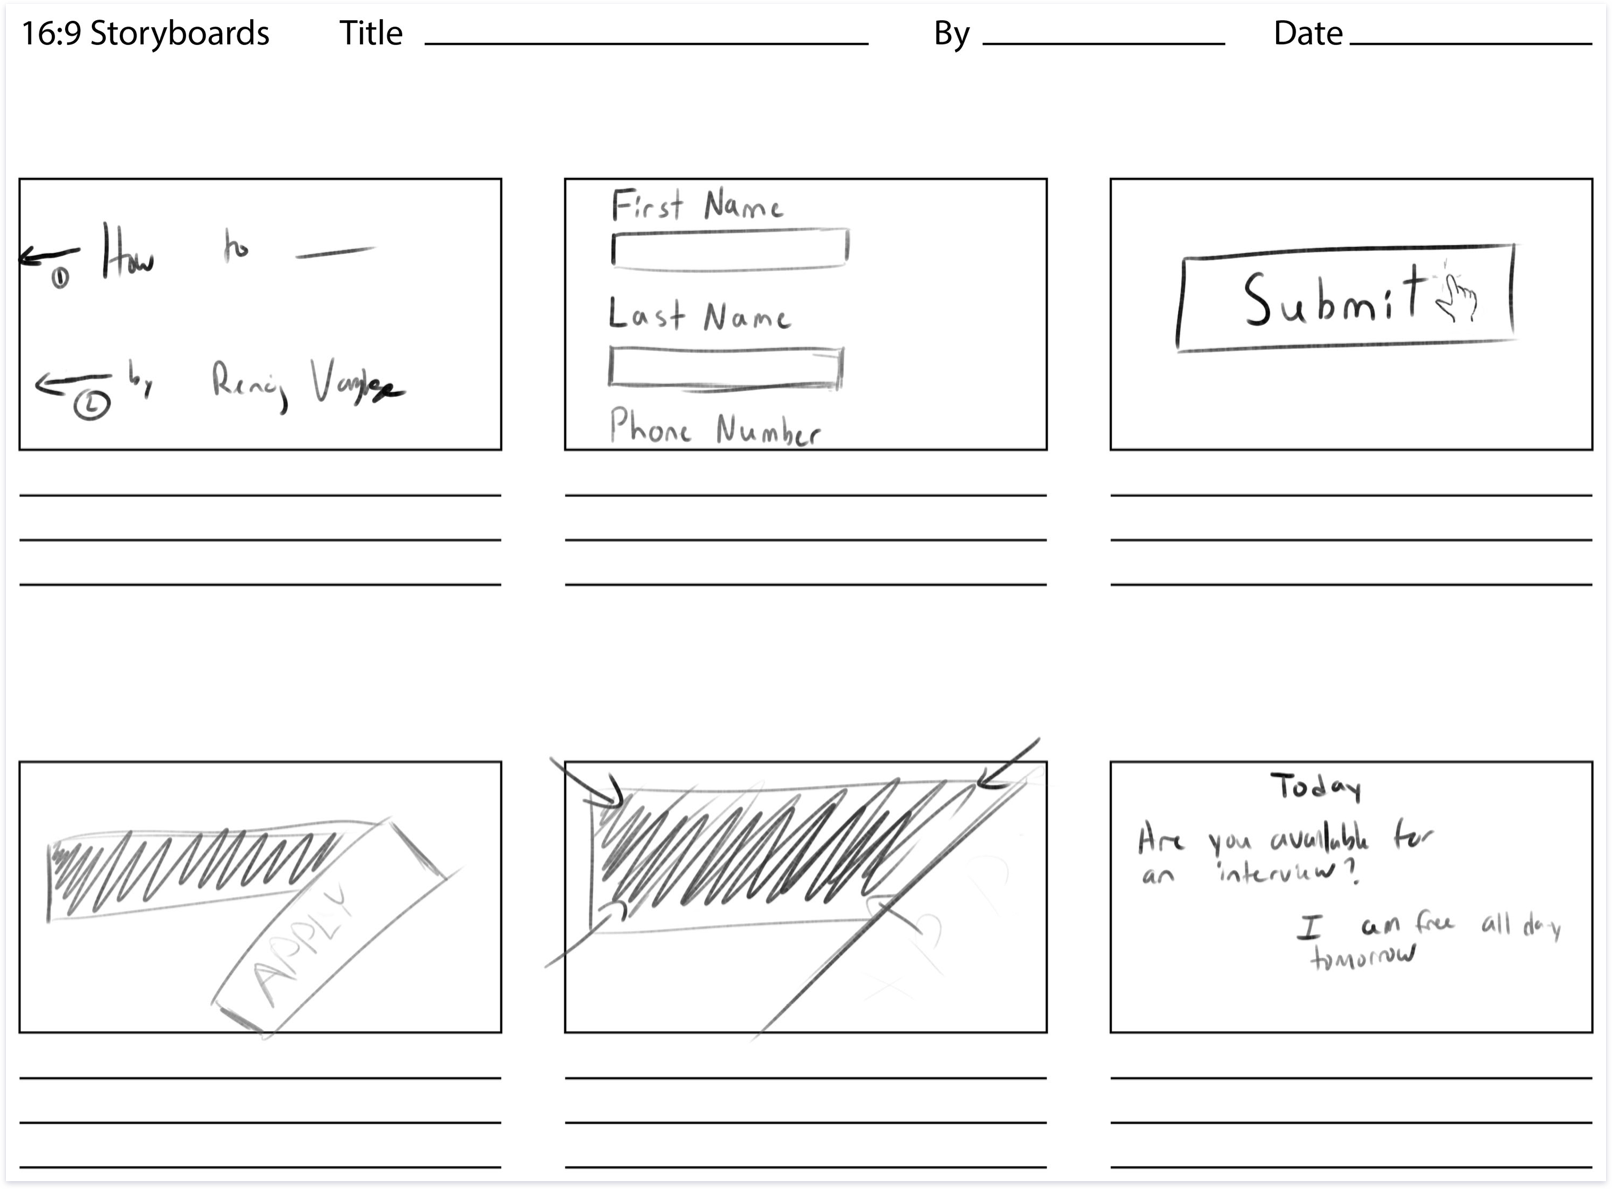 16:9 Storyboards Title By Date
How to
① 
by
②
First Name
Last Name
Phone Number
Submit
APPLY
Today
Are you available for
an interview?
I am free all day
tomorrow